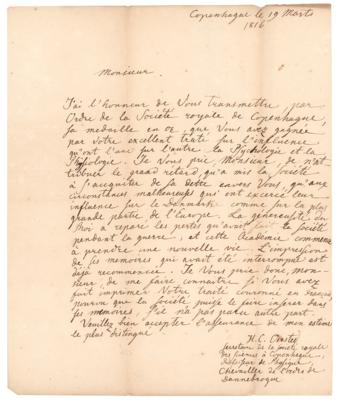 Copenhague le 19 Marts
1816
Monsieur.
J'ai l'honneur de Vous transmettre, par
Ordre de la Société royale de Copenhague,
sa medaille en or, que Vous avez gagnée
par votre excellent traité sur l'influence
qu'ont l'une sur l'autre la Psychologie et la
Physiologie. Je Vous prie, Monsieur, de n'at-
tribuer le grand retard, qu'a mis la Société
à s'acquitter de sa dette envers Vous qu'aux
circonstances malheureuses qui ont exercé leur
influence sur le Danemark comme sur la plus
grande partie de l'Europe. La générosité du
Roi a reparé les pertes qu'avait fait la Société
pendant la guerre, et cette Academie commence
à prendre une nouvelle vie. L'impression
de ses memoires qui avait été interrompue est
déjà recommencée. Je Vous prie donc, Mon-
sieur, de me faire connaître si Vous avez
fait imprimer Votre traité couronné en français
pourvu que la Société puisse le faire inserer dans
ses memoires, s'il n'a pas paru autre part.
Veuillez bien accepter l'assurance de mon estime
le plus distingué
H.C. Örsted
secretaire de la societé royale
des sciences à Copenhague,
Professeur de Physique,
Chevallier de l'ordre de
Dannebrogue